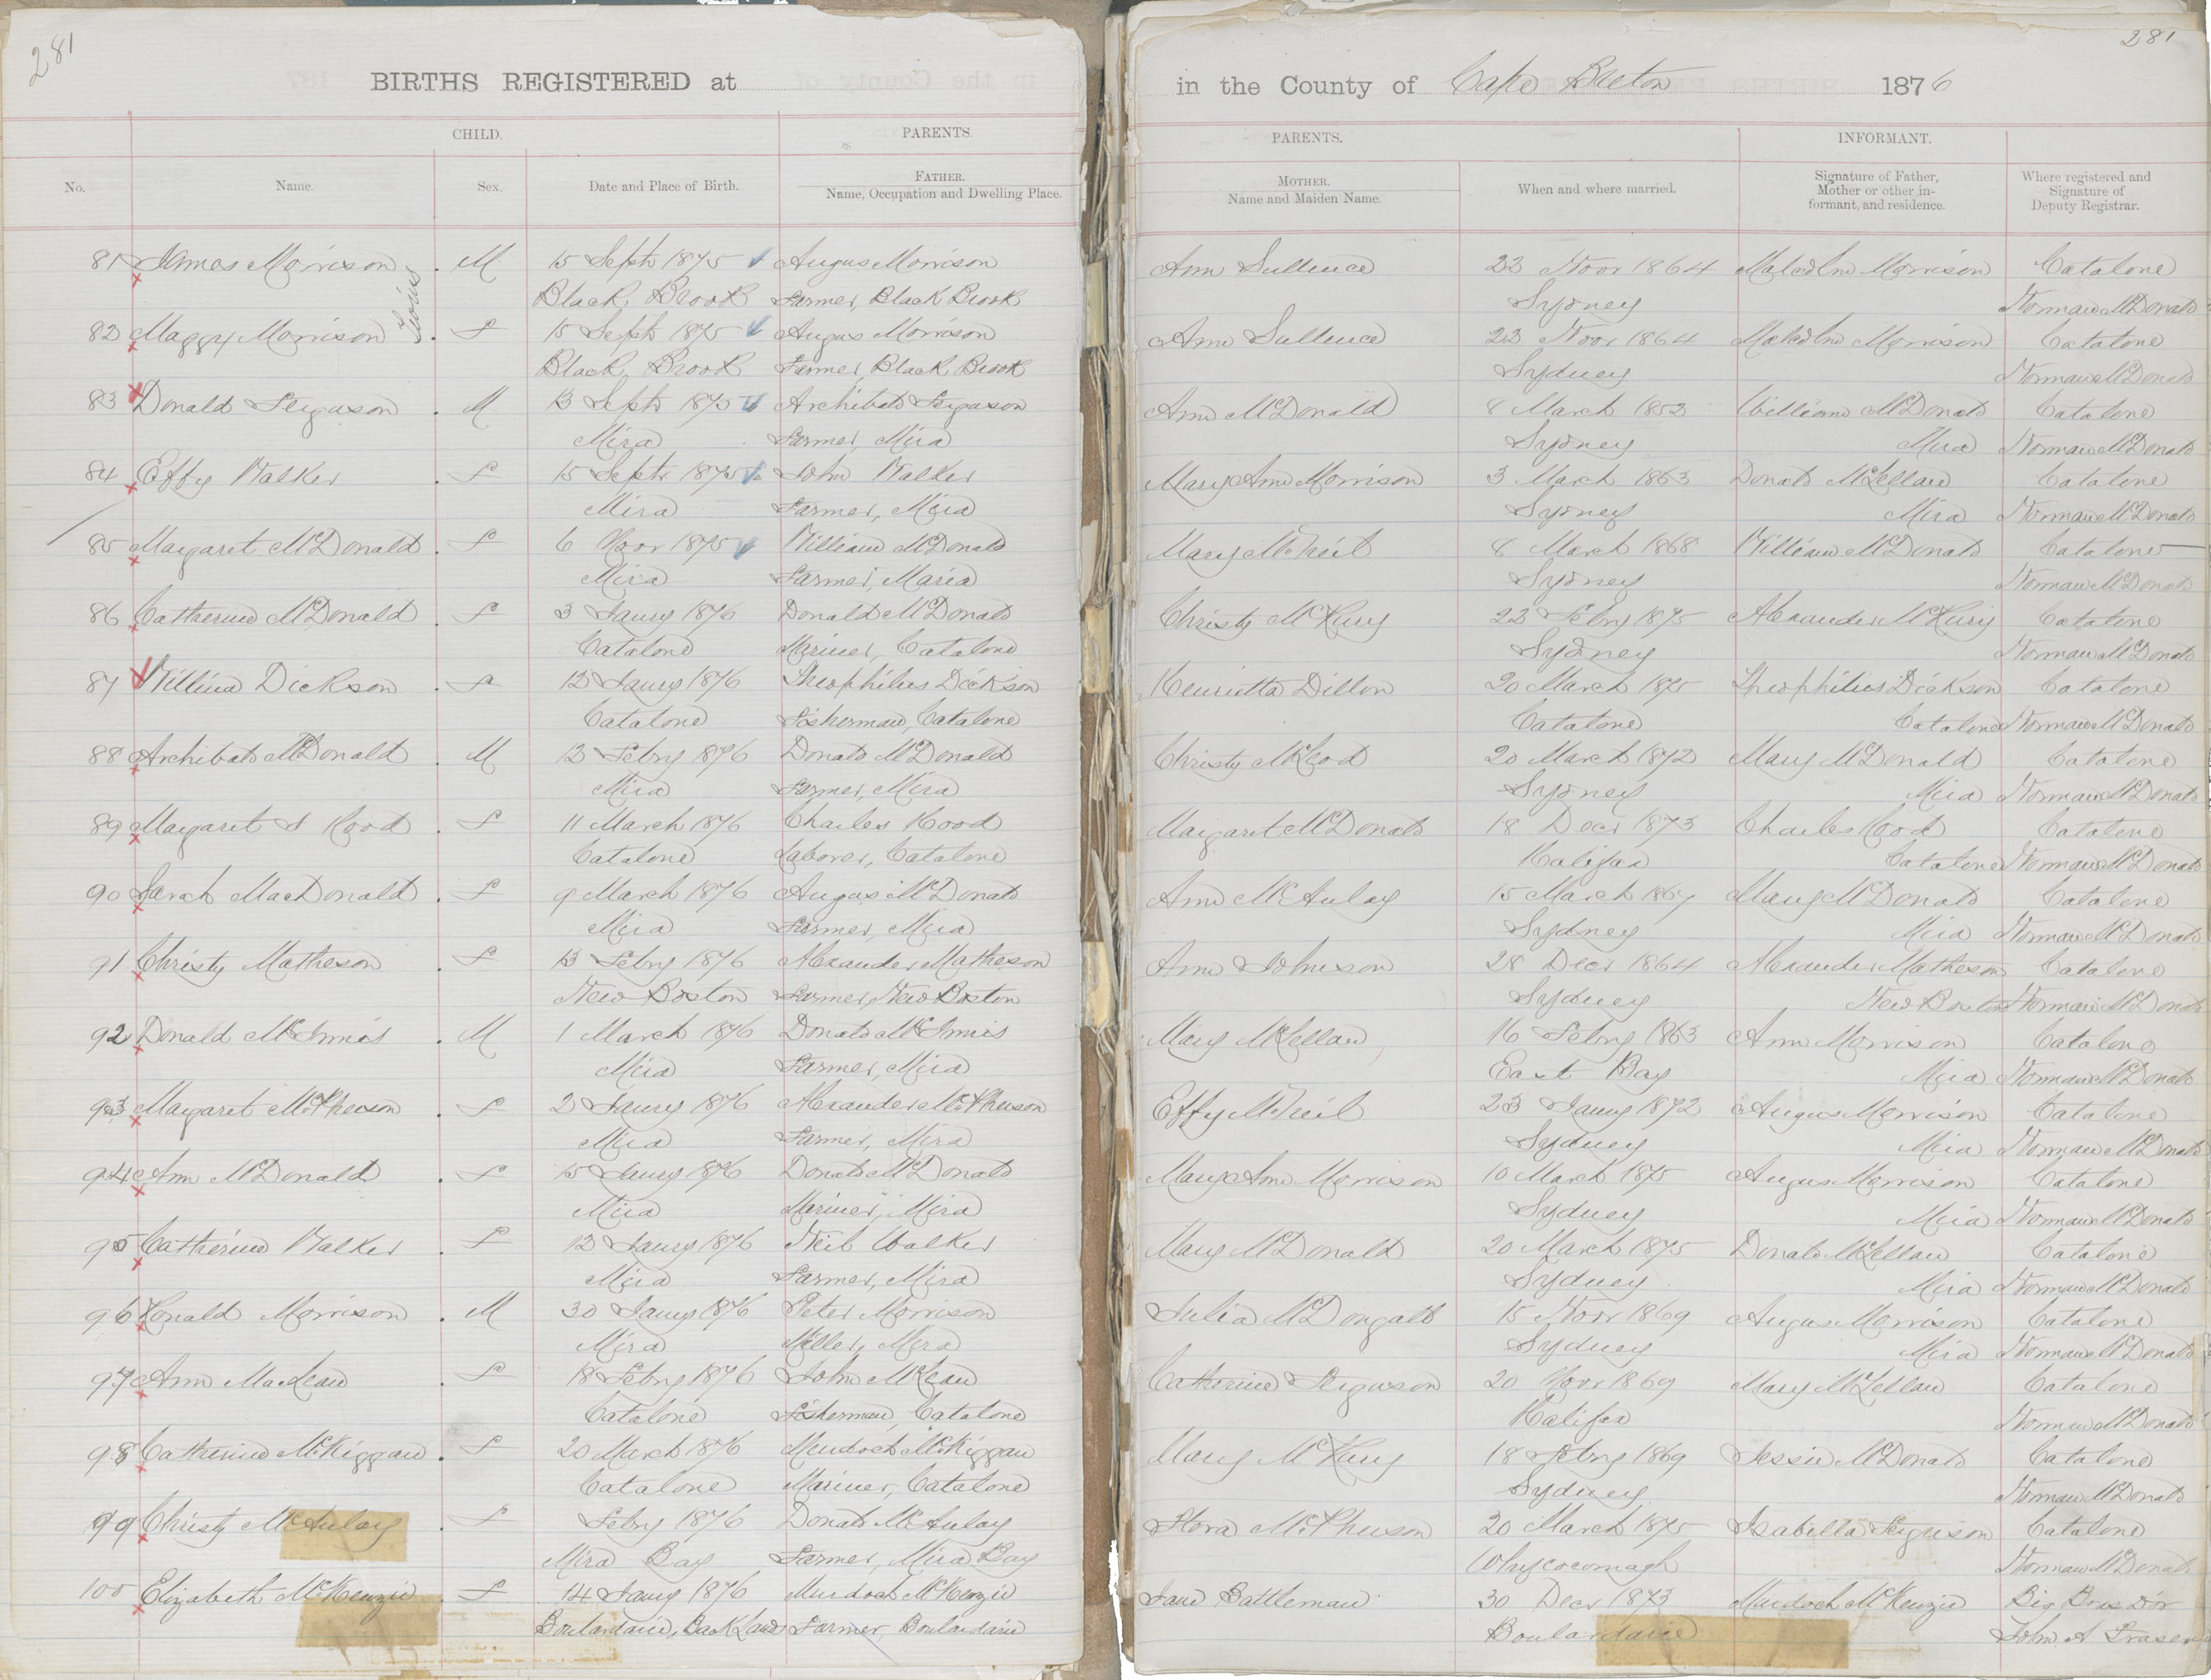 281
BIRTHS REGISTERED at
CHILD.
PARENTS.
No.
Name.
Sex.
Date and Place of Birth.
FATHER.
Name, Occupation and Dwelling Place.
81 James Morrison M 15 Septr 1875 Angus Morrison
Twins
Black Brook Farmer, Black Brook
82 Maggy Morrison f 15 Septr 1875 Angus Morrison
Black Brook Farmer, Black Brook
83 Donald Ferguson M 13 Septr 1875 Archibald Ferguson
Mira Farmer, Mira
84 Effy Walker f 15 Septr 1875 John Walker
Mira Farmer, Mira
85 Margaret McDonald f 6 Novr 1875 William McDonald
Mira Farmer, Maria
86 Catherine McDonald f 3 Jany 1876 Donald McDonald
Catalone Mariner, Catalone
87 Dickson f 12 Jany 1876 Theophilus Dickson
Catalone Fisherman, Catalone
88 Archibald McDonald M 13 Febry 1876 Donald McDonald
Mira Farmer, Mira
89 Margaret S Hood f 11 March 1876 Charles Hood
Catalone Laborer, Catalone
90 Sarah MacDonald f 9 March 1876 Angus McDonald
Mira Farmer, Mira
91 Christy Matheson f 13 Febry 1876 Alexander Matheson
New Boston Farmer, New Boston
92 Donald McInnis M 1 March 1876 Donald McInnis
Mira Farmer, Mira
93 Margaret McPherson f 2 Jany 1876 Alexander McPherson
Mira Farmer, Mira
94 Ann McDonald f 15 Jany 1876 Donald McDonald
Mira Mariner, Mira
95 Catherine Walker f 12 Jany 1876 Neil Walker
Mira Farmer, Mira
96 Ronald Morrison M 30 Jany 1876 Peter Morrison
Mira Miller, Mira
97 Ann MacLean f 18 Febry 1876 John McLean
Catalone Fisherman, Catalone
98 Catherine McKiggan f 20 March 1876 Murdoch McKiggan
Catalone Mariner, Catalone
99 Christy McAulay f Febry 1876 Donald McAulay
Mira Bay Farmer, Mira Bay
100 Elizabeth McKenzie f 14 Jany 1876 Murdoch McKenzie
Boulardarie, Back Lands Farmer, Boulardarie
281
in the County of Cape Breton 1876
PARENTS.
INFORMANT.
MOTHER.
Name and Maiden Name.
When and where married.
Signature of Father,
Mother or other in-
formant, and residence.
Where registered and
Signature of
Deputy Registrar.
Ann 23 Novr 1864 Malcolm Morrison Catalone
Sydney Norman McDonald
Ann 23 Novr 1864 Malcolm Morrison Catalone
Sydney Norman McDonald
Ann McDonald 8 March 1853 William McDonald Catalone
Sydney Mira Norman McDonald
Mary Ann Morrison 3 March 1863 Donald McLellan Catalone
Sydney Mira Norman McDonald
Mary McNeil 8 March 1868 William McDonald Catalone
Sydney Norman McDonald
Christy McKay 23 Febry 1875 Alexander McKay Catalone
Sydney Norman McDonald
Henrietta Dillon 20 March 1875 Theophilus Dickson Catalone
Catalone Catalone Norman McDonald
Christy McLeod 20 March 1872 Mary McDonald Catalone
Sydney Mira Norman McDonald
Margaret McDonald 18 Decr 1873 Charles Hood Catalone
Halifax Catalone Norman McDonald
Ann McAulay 15 March 1867 Mary McDonald Catalone
Sydney Mira Norman McDonald
Ann Johnson 28 Decr 1864 Alexander Matheson Catalone
Sydney New Boston Norman McDonald
Mary McLellan 16 Febry 1863 Ann Morrison Catalone
East Bay Mira Norman McDonald
Effy McNeil 23 Jany 1872 Angus Morrison Catalone
Sydney Mira Norman McDonald
Mary Ann Morrison 10 March 1875 Angus Morrison Catalone
Sydney Mira Norman McDonald
Mary McDonald 20 March 1875 Donald McLellan Catalone
Sydney Mira Norman McDonald
Julia McDougall 15 Novr 1869 Angus Morrison Catalone
Sydney Mira Norman McDonald
Catherine Ferguson 20 Novr 1869 Mary McLellan Catalone
Halifax Norman McDonald
Mary McKay 18 Febry 1869 Jessie McDonald Catalone
Sydney Norman McDonald
Flora McPherson 20 March 1875 Isabella Ferguson Catalone
Whycocomagh Norman McDonald
Jane Battleman 30 Decr 1873 Murdoch McKenzie Big Bras D'or
Boulardarie John A Fraser